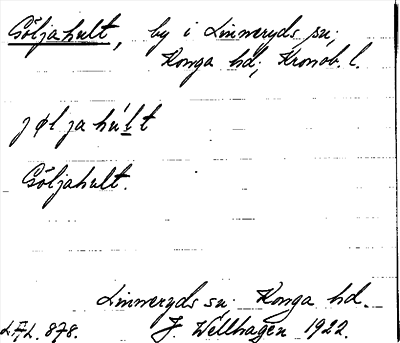 Göljahult, by i Linneryds sn;
Konga hd; Kronob. l.
jøljahúlt
Göljahult.
Linneryds sn; Konga hd.
LFL. 878. J. Wellhagen 1922.